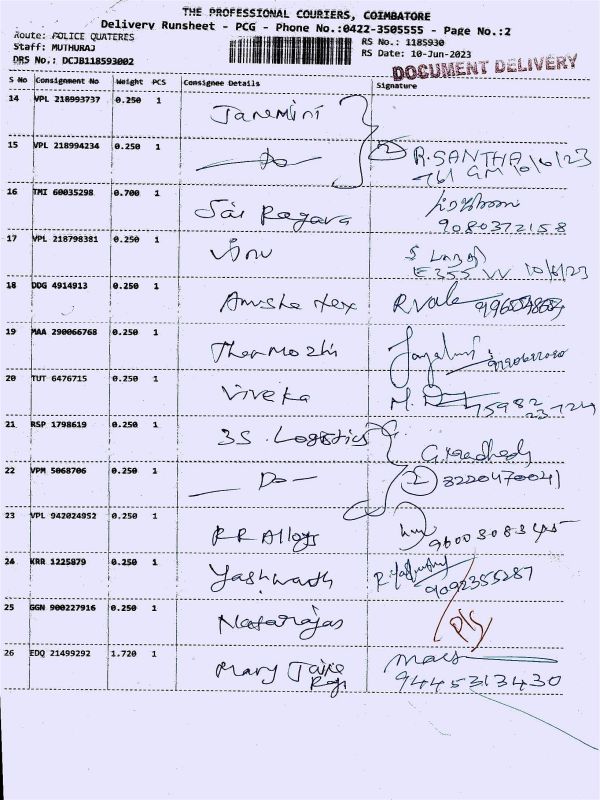 THE PROFESSIONAL COURIERS, COIMBATORE
Delivery Runsheet - PCG - Phone No.:0422-3505555 - Page No.:2
Route: POLICE QUATERES
RS No.: 1185930
Staff: MUTHURAJ
RS Date: 10-Jun-2023
DRS No.: DCJB118593002
DOCUMENT DELIVERY
S No Consignment No Weight PCS Consignee Details Signature
14 VPL 218993737 0.250 1
15 VPL 218994234 0.250 1 Do 2 R.SANTHA
761 GM 10/6/23
16 TMI 60035298 0.700 1 Sai Ragava
9080372158
17 VPL 218798381 0.250 1 வீனு
E355 VV 10/6/23
18 DDG 4914913 0.250 1 Anusha tex
19 MAA 290066768 0.250 1
20 TUT 6476715 0.250 1 Viveka
75982
23724
21 RSP 1798619 0.250 1 3S Logistics
22 VPM 5068706 0.250 1 Do 2 8220470041
23 VPL 942024952 0.250 1 RR Alloys
24 KRR 1225879 0.250 1 Yashwath
9092355287
25 GGN 900227916 0.250 1 Natarajas
26 EDQ 21499292 1.720 1 Mary
9445313430